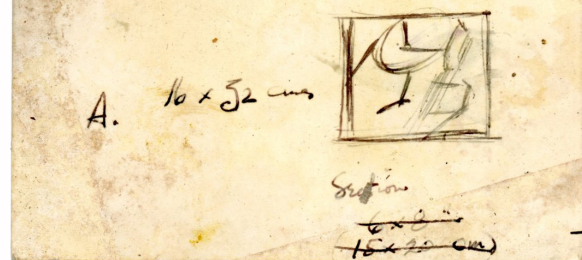 A. 16 x 32 cms
Section
6 x 8
(15 x 20 cm)